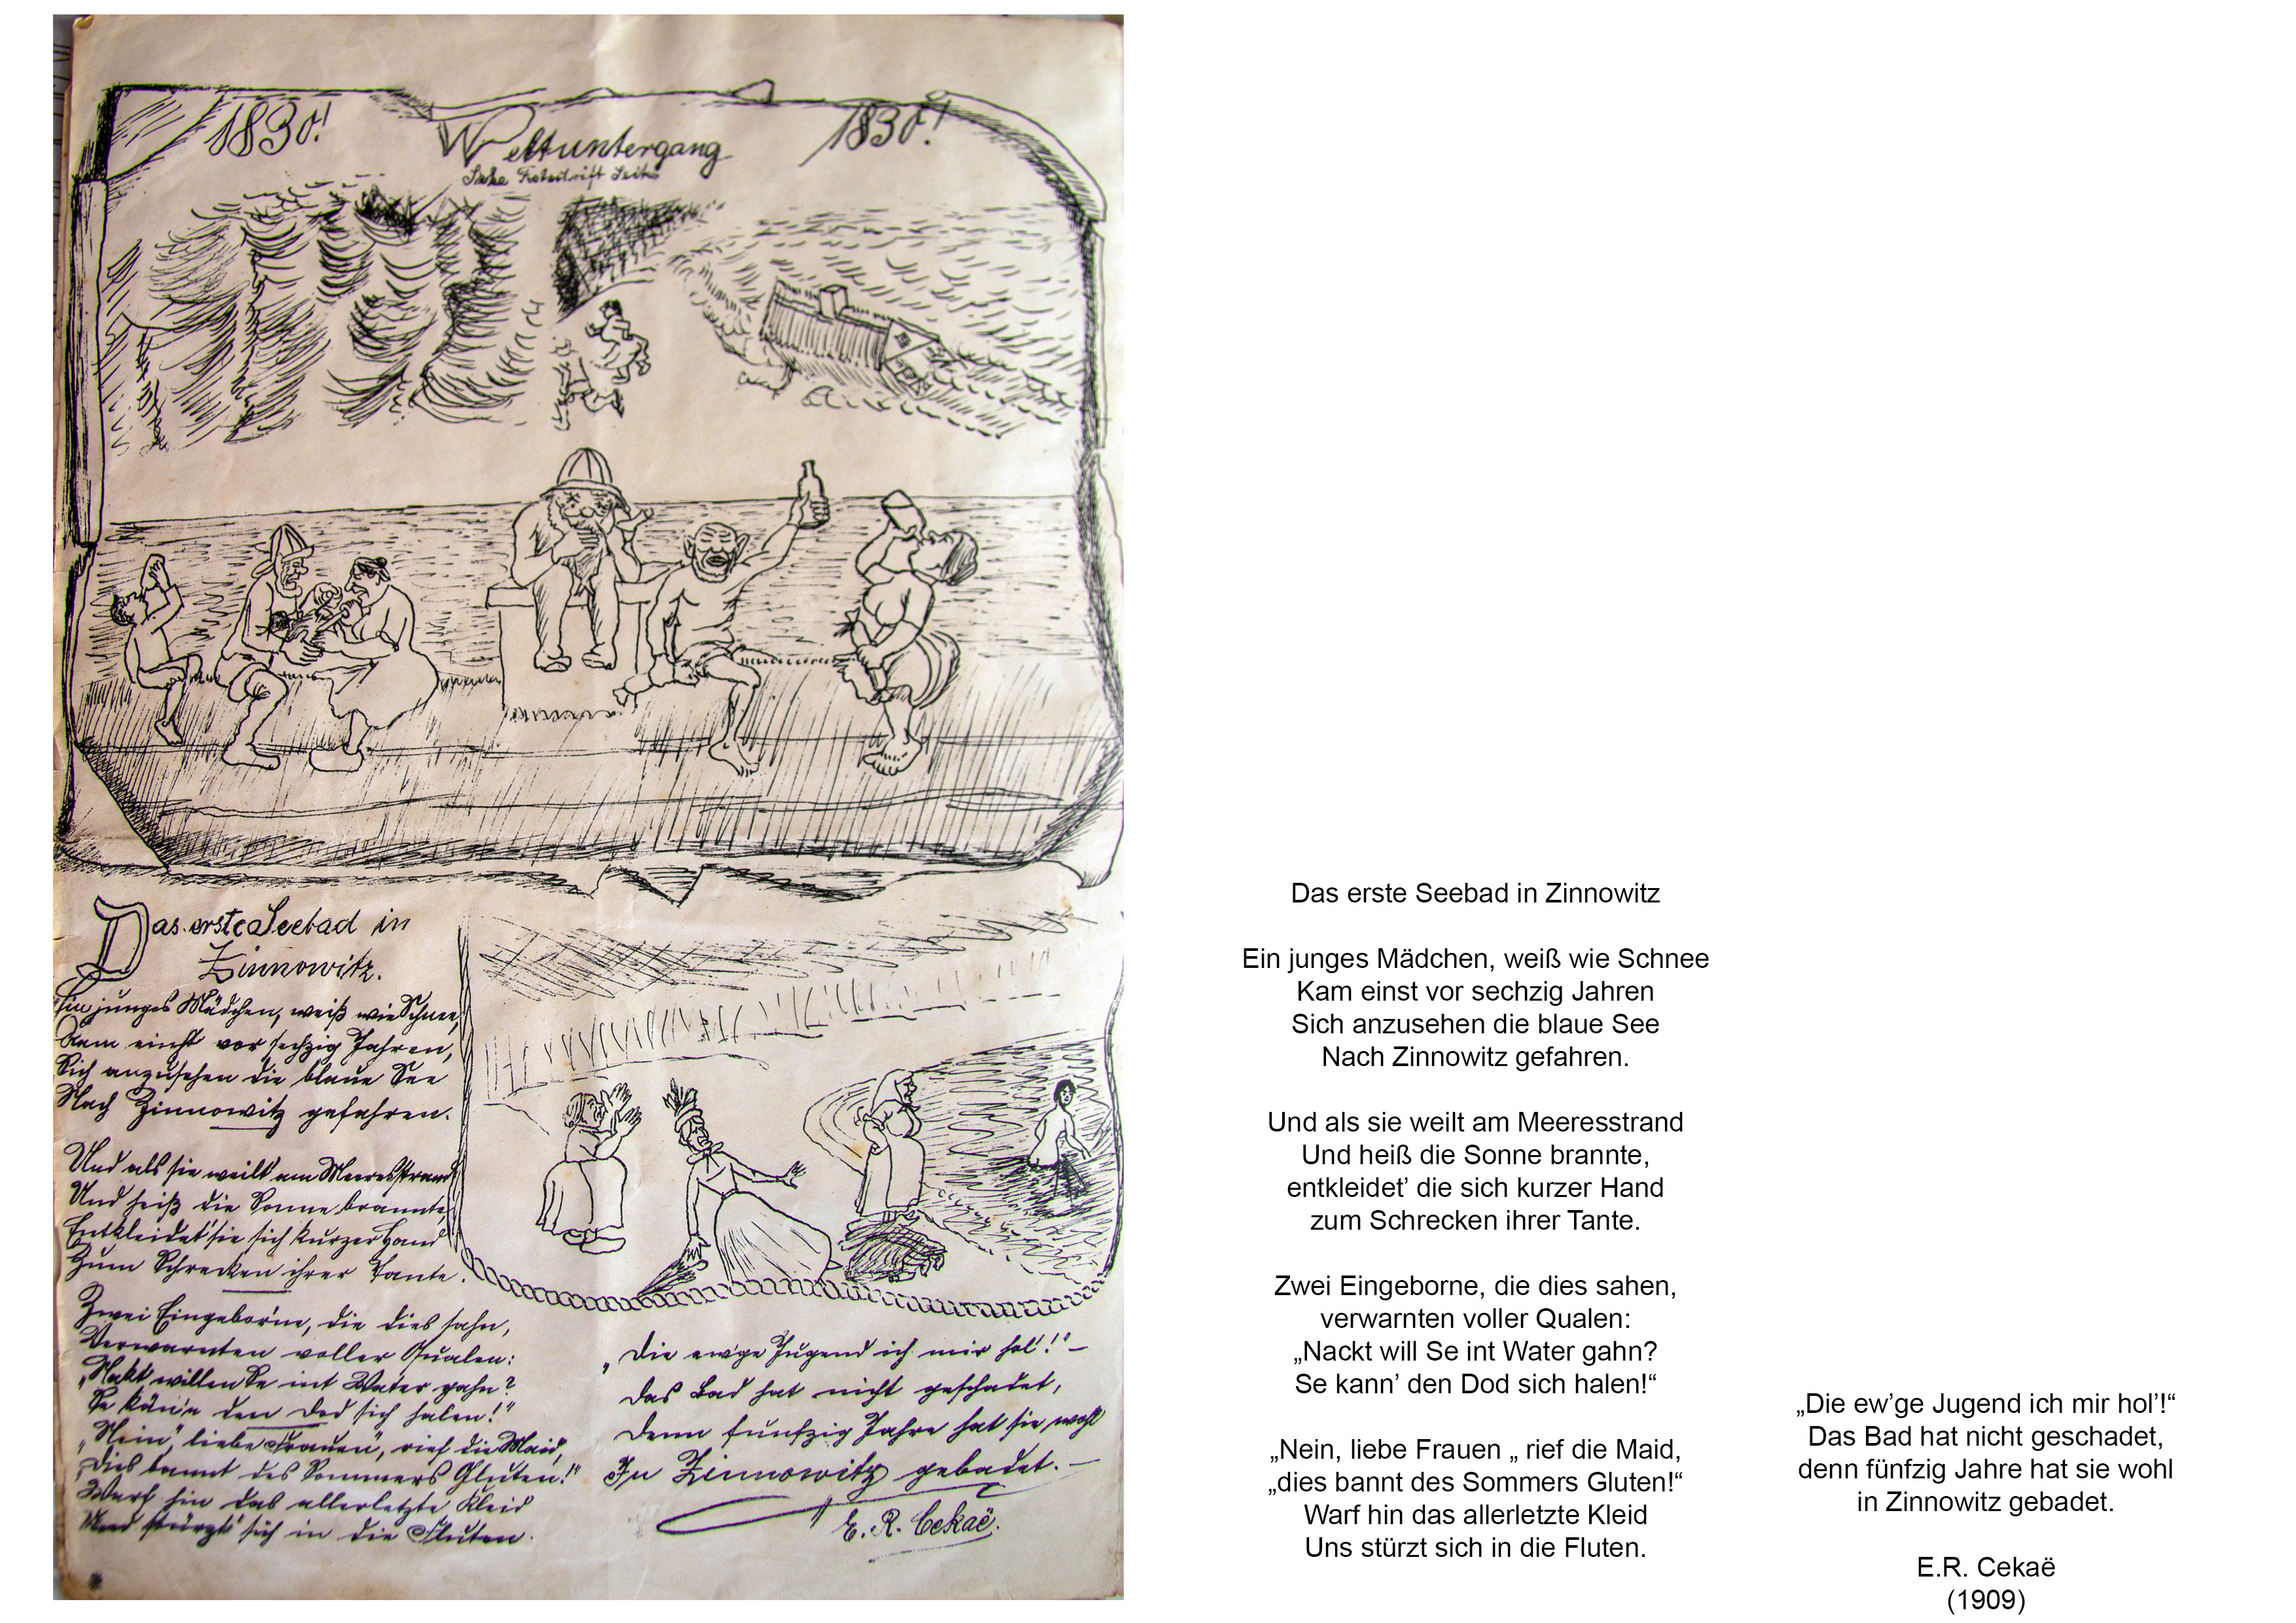 1830!
Weltuntergang
1830!
Das erste Seebad in
Zinnowitz.
Ein junges Mädchen, weiß wie Schnee,
Kam einst vor sechzig Jahren,
Sich anzusehen die blaue See
Nach Zinnowitz gefahren.
Und als sie weilt am Meeresstrand
Und heiß die Sonne brannte,
Entkleidet' sie sich kurzer Hand
Zum Schrecken ihrer Tante.
Zwei Eingebor'ne, die dies sahn,
Verwarnten voller Qualen:
„Nakt willen Se int Water gahn?
Se kän'n den Dod sich halen!"
„Nein", liebe Frauen", rief die Maid,
„Dies bannt des Sommers Gluten!"
Warf hin das allerletzte Kleid
Und stürzt' sich in die Fluten.
„Die ew'ge Jugend ich mir hol'!" –
Das Bad hat nicht geschadet,
Denn fünfzig Jahre hat sie wohl
In Zinnowitz gebadet. –
E. R. Cekaë.
Das erste Seebad in Zinnowitz
Ein junges Mädchen, weiß wie Schnee
Kam einst vor sechzig Jahren
Sich anzusehen die blaue See
Nach Zinnowitz gefahren.
Und als sie weilt am Meeresstrand
Und heiß die Sonne brannte,
entkleidet’ die sich kurzer Hand
zum Schrecken ihrer Tante.
Zwei Eingeborne, die dies sahen,
verwarnten voller Qualen:
„Nackt will Se int Water gahn?
Se kann’ den Dod sich halen!“
„Nein, liebe Frauen „ rief die Maid,
„dies bannt des Sommers Gluten!“
Warf hin das allerletzte Kleid
Uns stürzt sich in die Fluten.
„Die ew’ge Jugend ich mir hol’!“
Das Bad hat nicht geschadet,
denn fünfzig Jahre hat sie wohl
in Zinnowitz gebadet.
E.R. Cekaë
(1909)